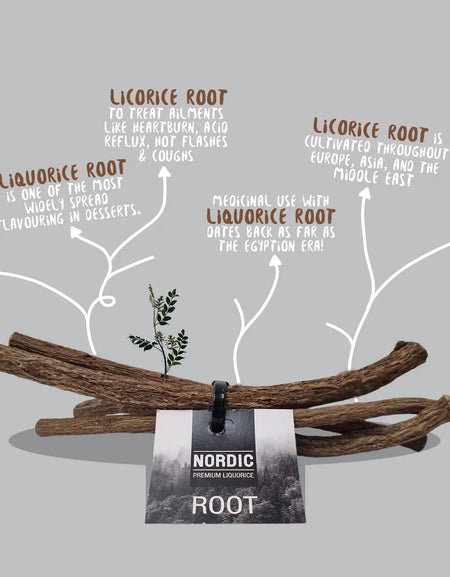 LICORICE ROOT
TO TREAT AILMENTS
LIKE HEARTBURN, ACID
REFLUX, HOT FLASHES
& COUGHS
LICORICE ROOT IS
CULTIVATED THROUGHOUT
EUROPE, ASIA, AND THE
MIDDLE EAST
LIQUORICE ROOT
IS ONE OF THE MOST
WIDELY SPREAD
FLAVOURING IN DESSERTS.
MEDICINAL USE WITH
LIQUORICE ROOT
DATES BACK AS FAR AS
THE EGYPTION ERA!
NORDIC
PREMIUM LIQUORICE
ROOT